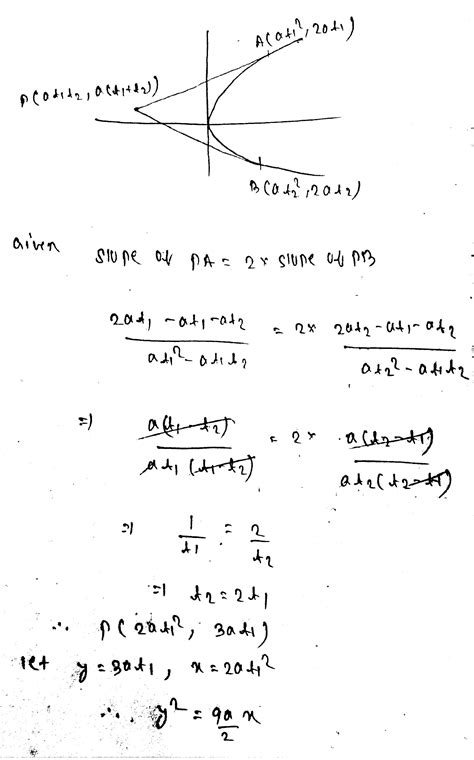 A(at₁², 2at₁)
P(at₁t₂, a(t₁+t₂))
B(at₂², 2at₂)
Given slope of PA = 2 × slope of PB
(2at₁ - at₁ - at₂)/(at₁² - at₁t₂) = 2 × (2at₂ - at₁ - at₂)/(at₂² - at₁t₂)
=) a(t₁ - t₂)/(at₁(t₁ - t₂)) = 2 × a(t₂ - t₁)/(at₂(t₂ - t₁))
=) 1/t₁ = 2/t₂
=) t₂ = 2t₁
∴ P(2at₁², 3at₁)
let y = 3at₁, x = 2at₁²
∴ y² = 9a/2 x